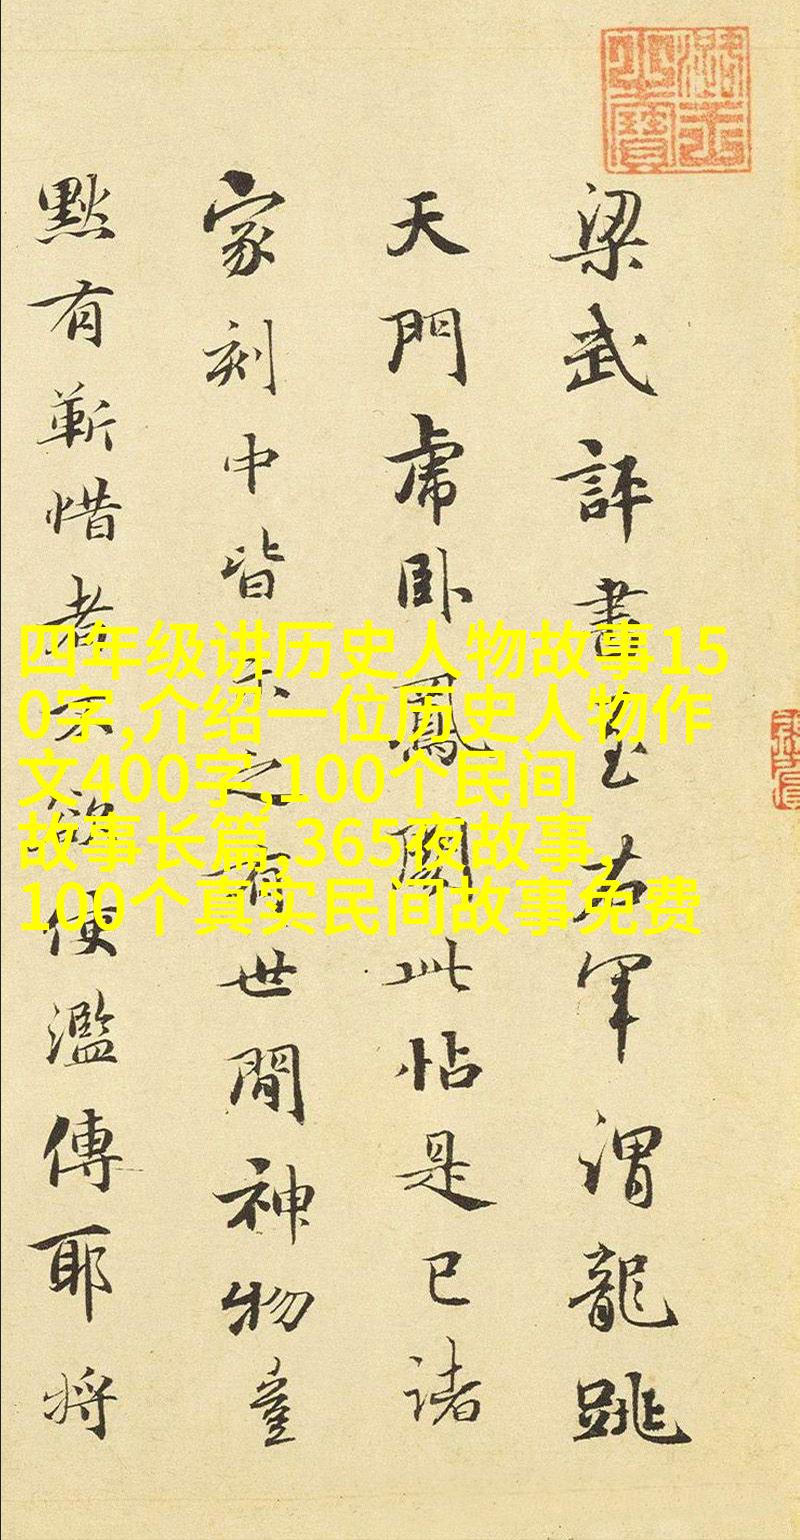 梁武評書至右軍謂龍跳
天門虎卧鳳閣此帖是已諸
家刻中皆不之有世間神物豈
黙有靳惜者不欲便濫傳耶将
四年级讲历史人物故事15
0字,介绍一位历史人物作
文400字,100个民间
故事长篇,365夜故事,
100个真实民间故事免费